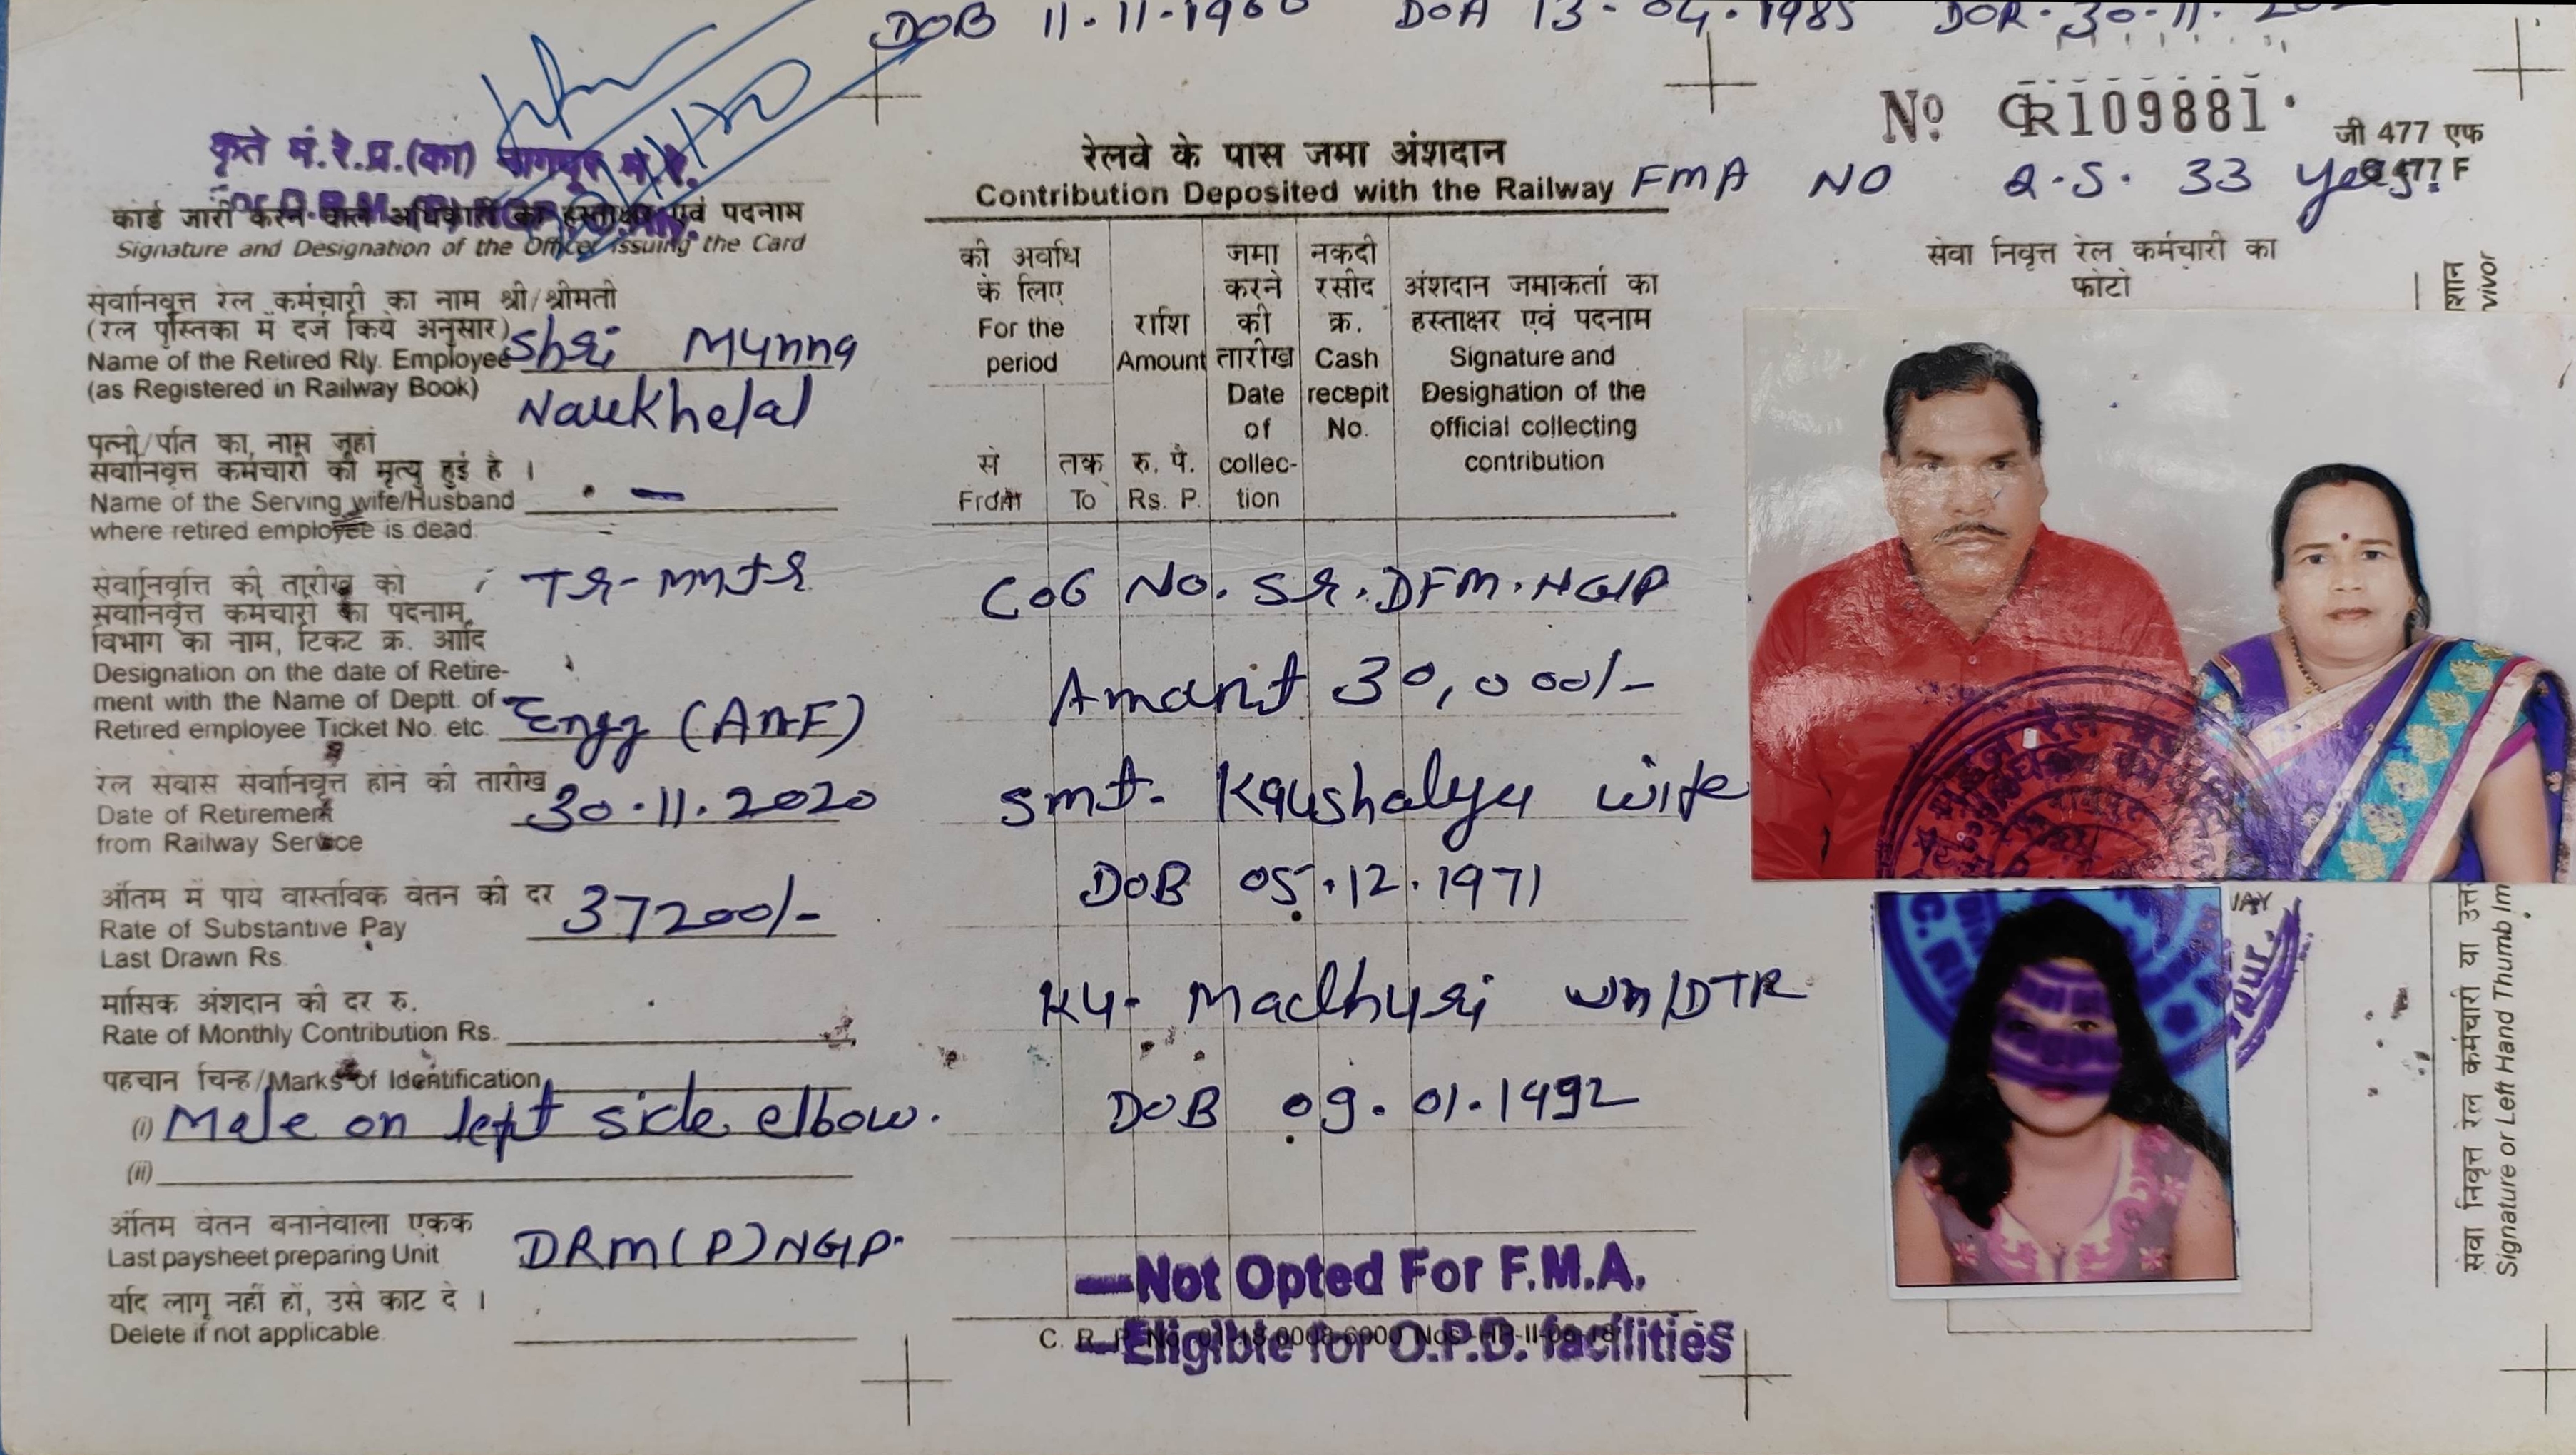 DOB 11.11.1960 DOA 13.04.1985 DOR. 30.11.
Signature and Designation of the Officer issuing the Card
सेवानिवृत्त रेल कर्मचारी का नाम श्री/श्रीमती
(रेल पुस्तिका में दर्ज किये अनुसार)
Name of the Retired Rly. Employee Shri Munna
(as Registered in Railway Book)
Naukhelal
पत्नी/पति का नाम जहां
सेवानिवृत्त कर्मचारी की मृत्यु हुई है ।
Name of the Serving wife/Husband
where retired employee is dead. -
सेवानिवृत्ति की तारीख को
सेवानिवृत्त कर्मचारी का पदनाम,
विभाग का नाम, टिकट क्र. आदि
Designation on the date of Retire-
ment with the Name of Deptt. of
Retired employee Ticket No. etc. Engg (AMF)
रेल सेवासे सेवानिवृत्त होने की तारीख
Date of Retirement 30.11.2020
from Railway Service
अंतिम में पाये वास्तविक वेतन की दर
Rate of Substantive Pay 37200/-
Last Drawn Rs.
मासिक अंशदान की दर रु.
Rate of Monthly Contribution Rs.
पहचान चिन्ह/Marks of Identification
(i) Mole on left side elbow.
(ii)
अंतिम वेतन बनानेवाला एकक
Last paysheet preparing Unit DRM(P)NGP.
यदि लागू नहीं हो, उसे काट दे ।
Delete if not applicable.
रेलवे के पास जमा अंशदान
Contribution Deposited with the Railway FMA NO
की अवधि के लिए
For the period
से तक
From To
राशि
Amount
रु. पै.
Rs. P.
जमा करने की तारीख
Date of collec-
tion
नकदी रसीद क्र.
Cash recepit No.
अंशदान जमाकर्ता का हस्ताक्षर एवं पदनाम
Signature and
Designation of the
official collecting
contribution
CO6 No. Sr. DFM. NGP
Amount 30,000/-
Smt. Kaushalya wife
DOB 05.12.1971
Ku. Madhuri UM/DTR
DOB 09.01.1992
Not Opted For F.M.A.
Eligible for O.P.D. facilities
No CR109881
जी 477 एफ
33
सेवा निवृत्त रेल कर्मचारी का
फोटो
सेवा निवृत्त रेल कर्मचारी या
Signature or Left Hand Thumb Im
vivor